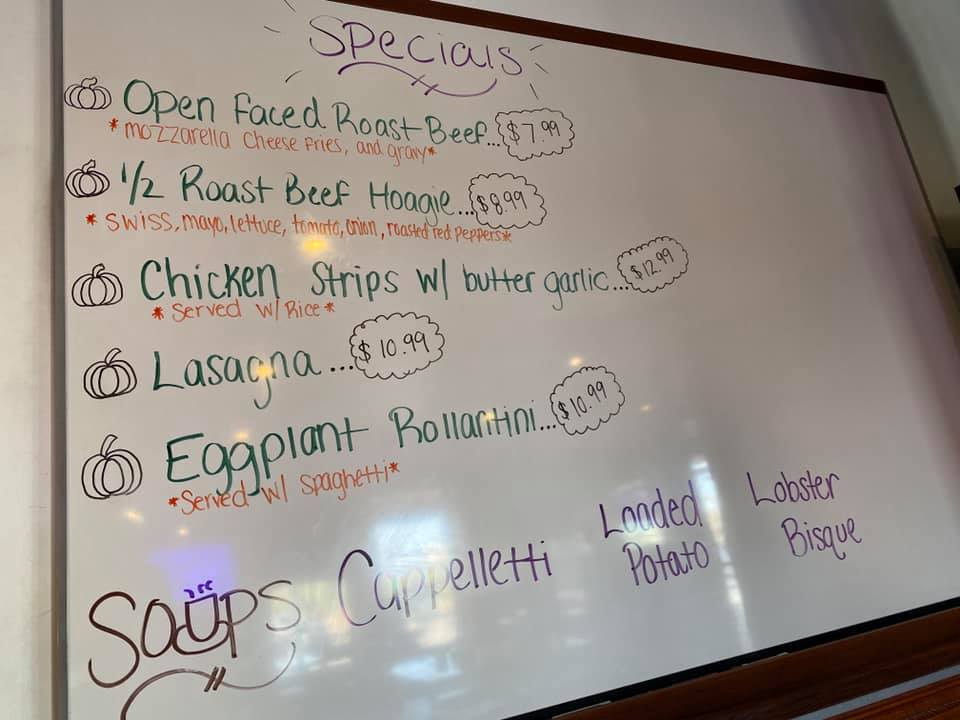 Specials
Open Faced Roast Beef...$7.99
*mozzarella cheese fries, and gravy*
1/2 Roast Beef Hoagie...$8.99
*swiss, mayo, lettuce, tomato, onion, roasted red peppers*
Chicken Strips w/ butter garlic...$12.99
*Served w/ Rice*
Lasagna...$10.99
Eggplant Rollantini...$10.99
*Served w/ Spaghetti*
Soups Cappelletti Loaded Potato Lobster Bisque